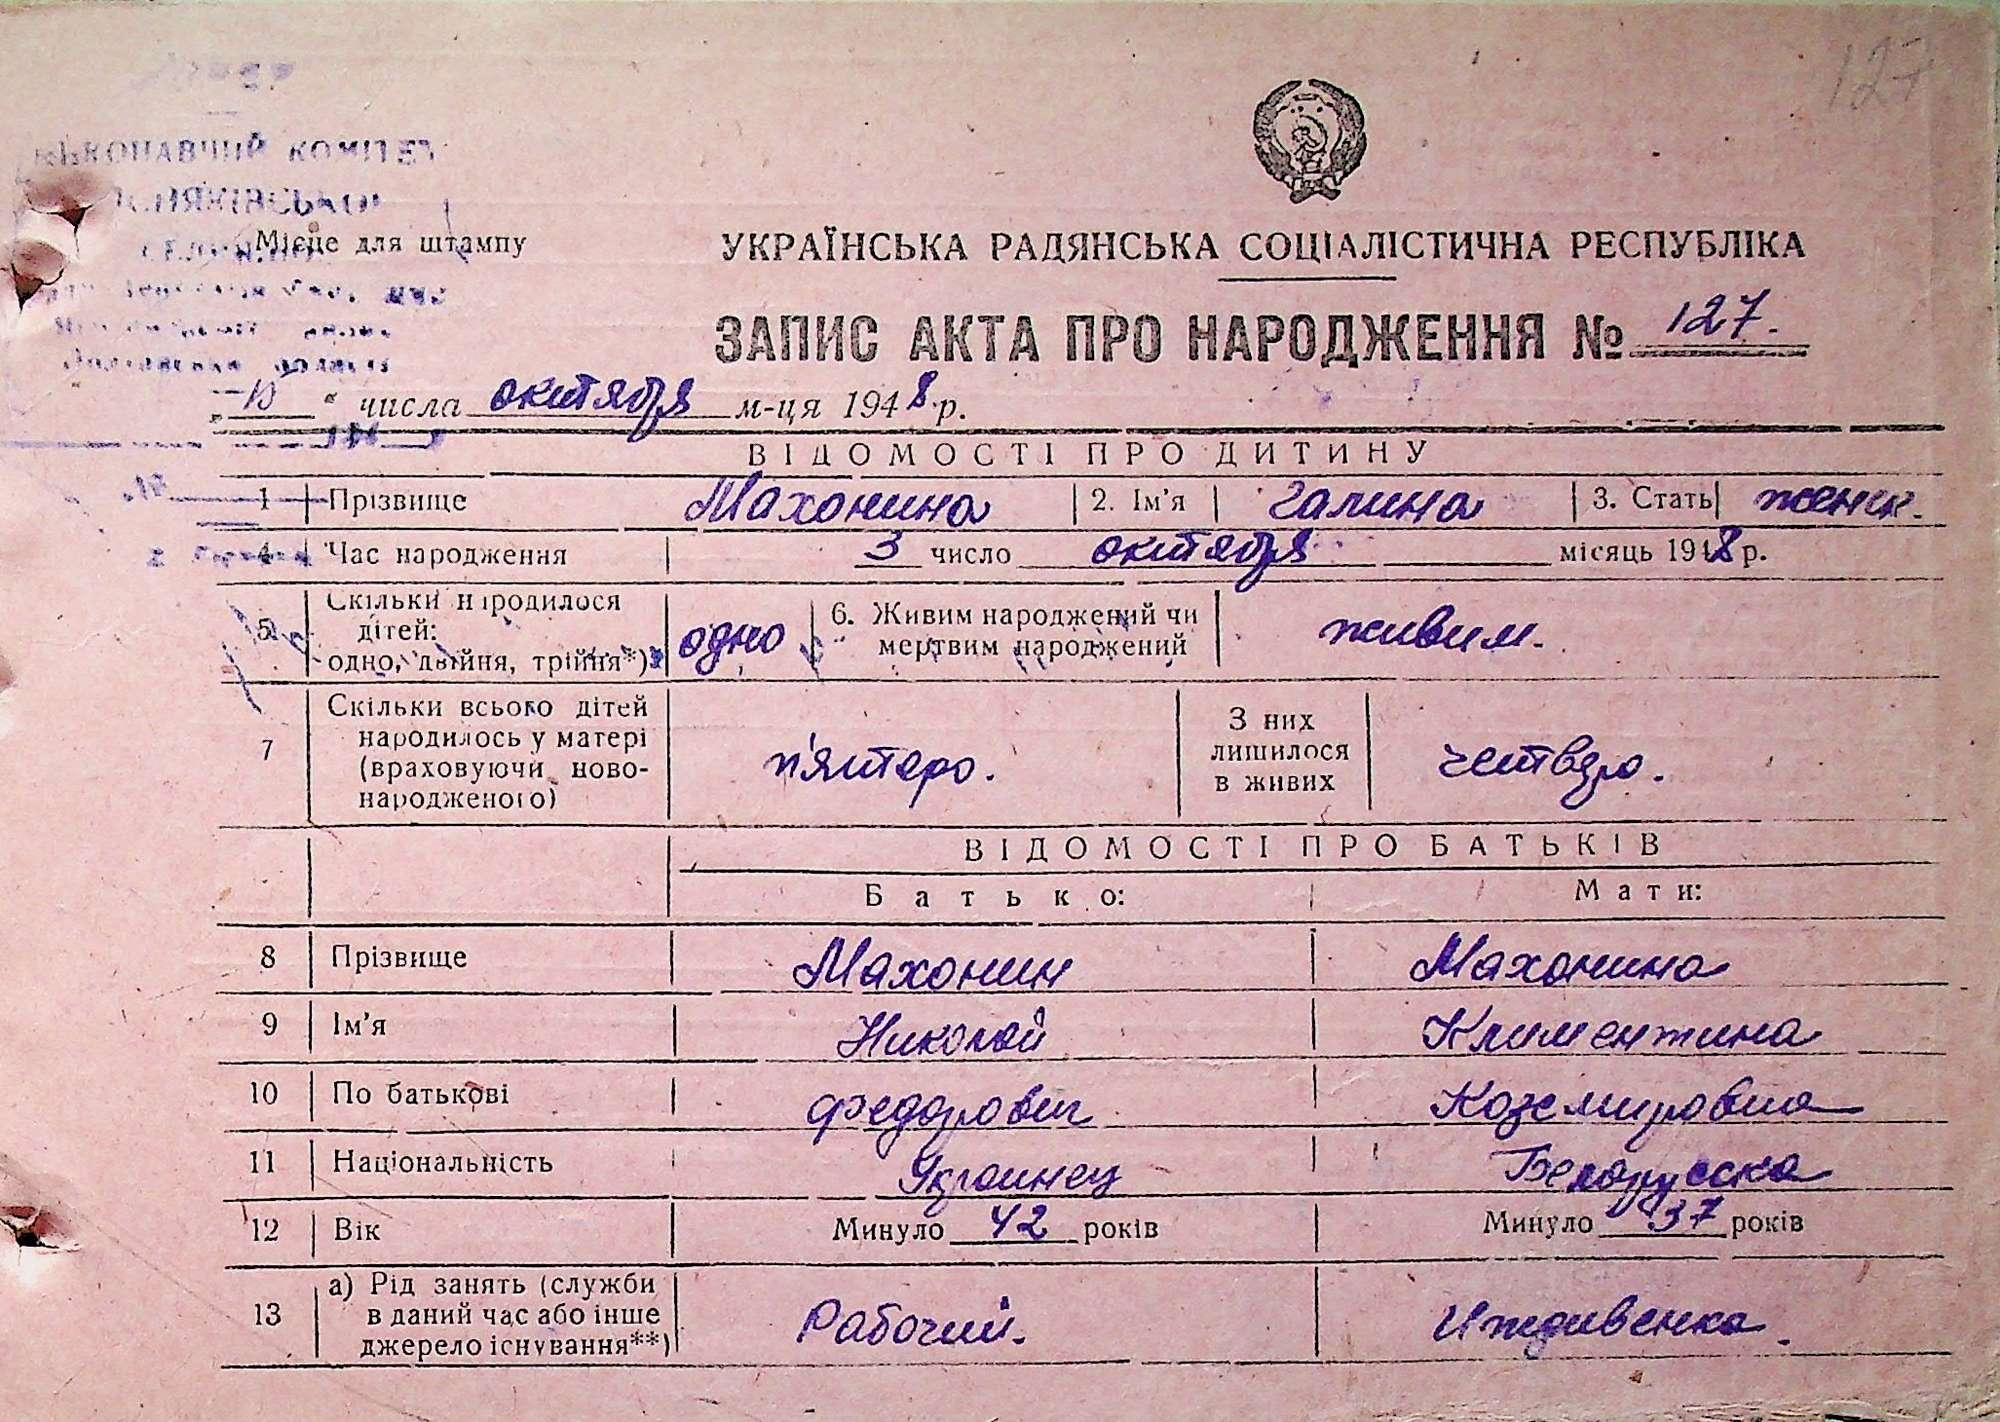 127
КОНАВЧИЙ КОМІТЕТ
Місце для штампу
УКРАЇНСЬКА РАДЯНСЬКА СОЦІАЛІСТИЧНА РЕСПУБЛІКА
ЗАПИС АКТА ПРО НАРОДЖЕННЯ № 127.
„15“ числа октября м-ця 1948 р.
ВІДОМОСТІ ПРО ДИТИНУ
1 Прізвище Махонина 2. Ім'я Галина 3. Стать женск.
4 Час народження 3 число октября місяць 1948 р.
5 Скільки народилося дітей: одно, двійня, трійня*) одно 6. Живим народжений чи мертвим народжений живим.
7 Скільки всього дітей народилось у матері (враховуючи новонародженого) п'ятеро. З них лишилося в живих четверо.
ВІДОМОСТІ ПРО БАТЬКІВ
Батько: Мати:
8 Прізвище Махонин Махонина
9 Ім'я Николай Климентина
10 По батькові Федорович Коземировна
11 Національність Украинец Белорусска
12 Вік Минуло 42 років Минуло 37 років
13 а) Рід занять (служби в даний час або інше джерело існування**) Рабочий. Иждивенка.